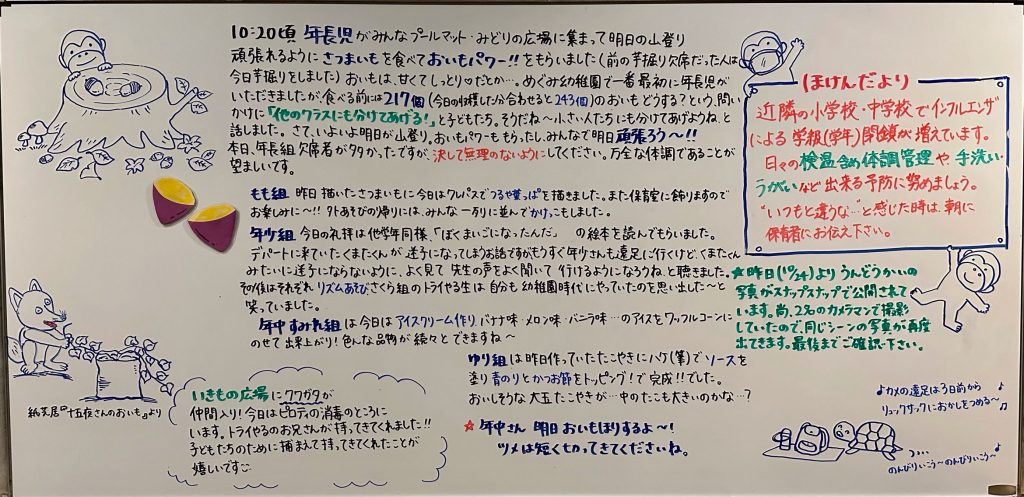 10:20頃 年長児がみんなプールマット・みどりの広場に集まって明日の山登り
頑張れるようにさつまいもを食べておいもパワー!!をもらいました(前の芋掘り欠席だった人は
今日芋掘りをしました)おいもは、甘くてしっとり♡だとか…。めぐみ幼稚園で一番最初に年長児が
いただきましたが、食べる前には217個(今日の収穫した分合わせると243個)のおいもどうする?という、問い
かけに「他のクラスにも分けてあげる!」と子どもたち。そうだね〜小さい人たちにも分けてあげようね、と
話しました。さて、いよいよ明日が山登り。おいもパワーももらったし、みんなで明日頑張ろう〜!!
本日、年長組欠席者が多かったですが、決して無理のないようにしてください。万全な体調であることが
望ましいです。
もも組 昨日描いたさつまいもに今日はクレパスでつるや葉っぱを描きました。また保育室に飾りますので
お楽しみに〜!! 外あそびの帰りには、みんな一列に並んでかけっこもしました。
年少組 今日の礼拝は他学年同様、「ぼくまいごになったんだ」 の絵本を読んでもらいました。
デパートに来ていたくまたくんが迷子になってしまうお話ですがもうすぐ年少さんも遠足に行くけど、くまたくん
みたいに迷子にならないように、よく見て先生の声をよく聞いて行けるようになろうね、と聴きました。
その後はそれぞれリズムあそび さくら組のトライやる生は自分も幼稚園時代にやっていたのを思い出した〜と
笑っていました。
年中 すみれ組は今日はアイスクリーム作り バナナ味・メロン味・バニラ味…のアイスをワッフルコーンに
のせて出来上がり!色んな品物が続々とできますね〜
ゆり組は昨日作っていたたこやきにハケ(筆)でソースを
塗り青のりとかつお節をトッピング!で完成!!でした。
おいしそうな大玉たこやきが…中のたこも大きいのかな…?
☆年中さん 明日おいもほりするよ〜!
ツメは短く切ってきてくださいね。
いきもの広場にクワガタが
仲間入り!今日はピロティの消毒のところに
います。トライやるのお兄さんが持ってきてくれました!!
子どもたちのために捕まえて持ってきてくれたことが
嬉しいです
紙芝居『十五夜さんのおいも』より
ほけんだより
近隣の小学校・中学校でインフルエンザ
による学級(学年)閉鎖が増えています。
日々の検温含め体調管理や手洗い・
うがいなど出来る予防に努めましょう。
“いつもと違うな…”と感じた時は、朝に
保育者にお伝え下さい。
★昨日(10/24)よりうんどうかいの
写真がスナップスナップで公開されて
います。尚、2名のカメラマンで撮影
していたので、同じシーンの写真が再度
出てきます。最後までご確認下さい。
♪カメの遠足は3日前から
リュックサックにおかしをつめる〜♫
のんびりいこう〜のんびりいこう〜♪